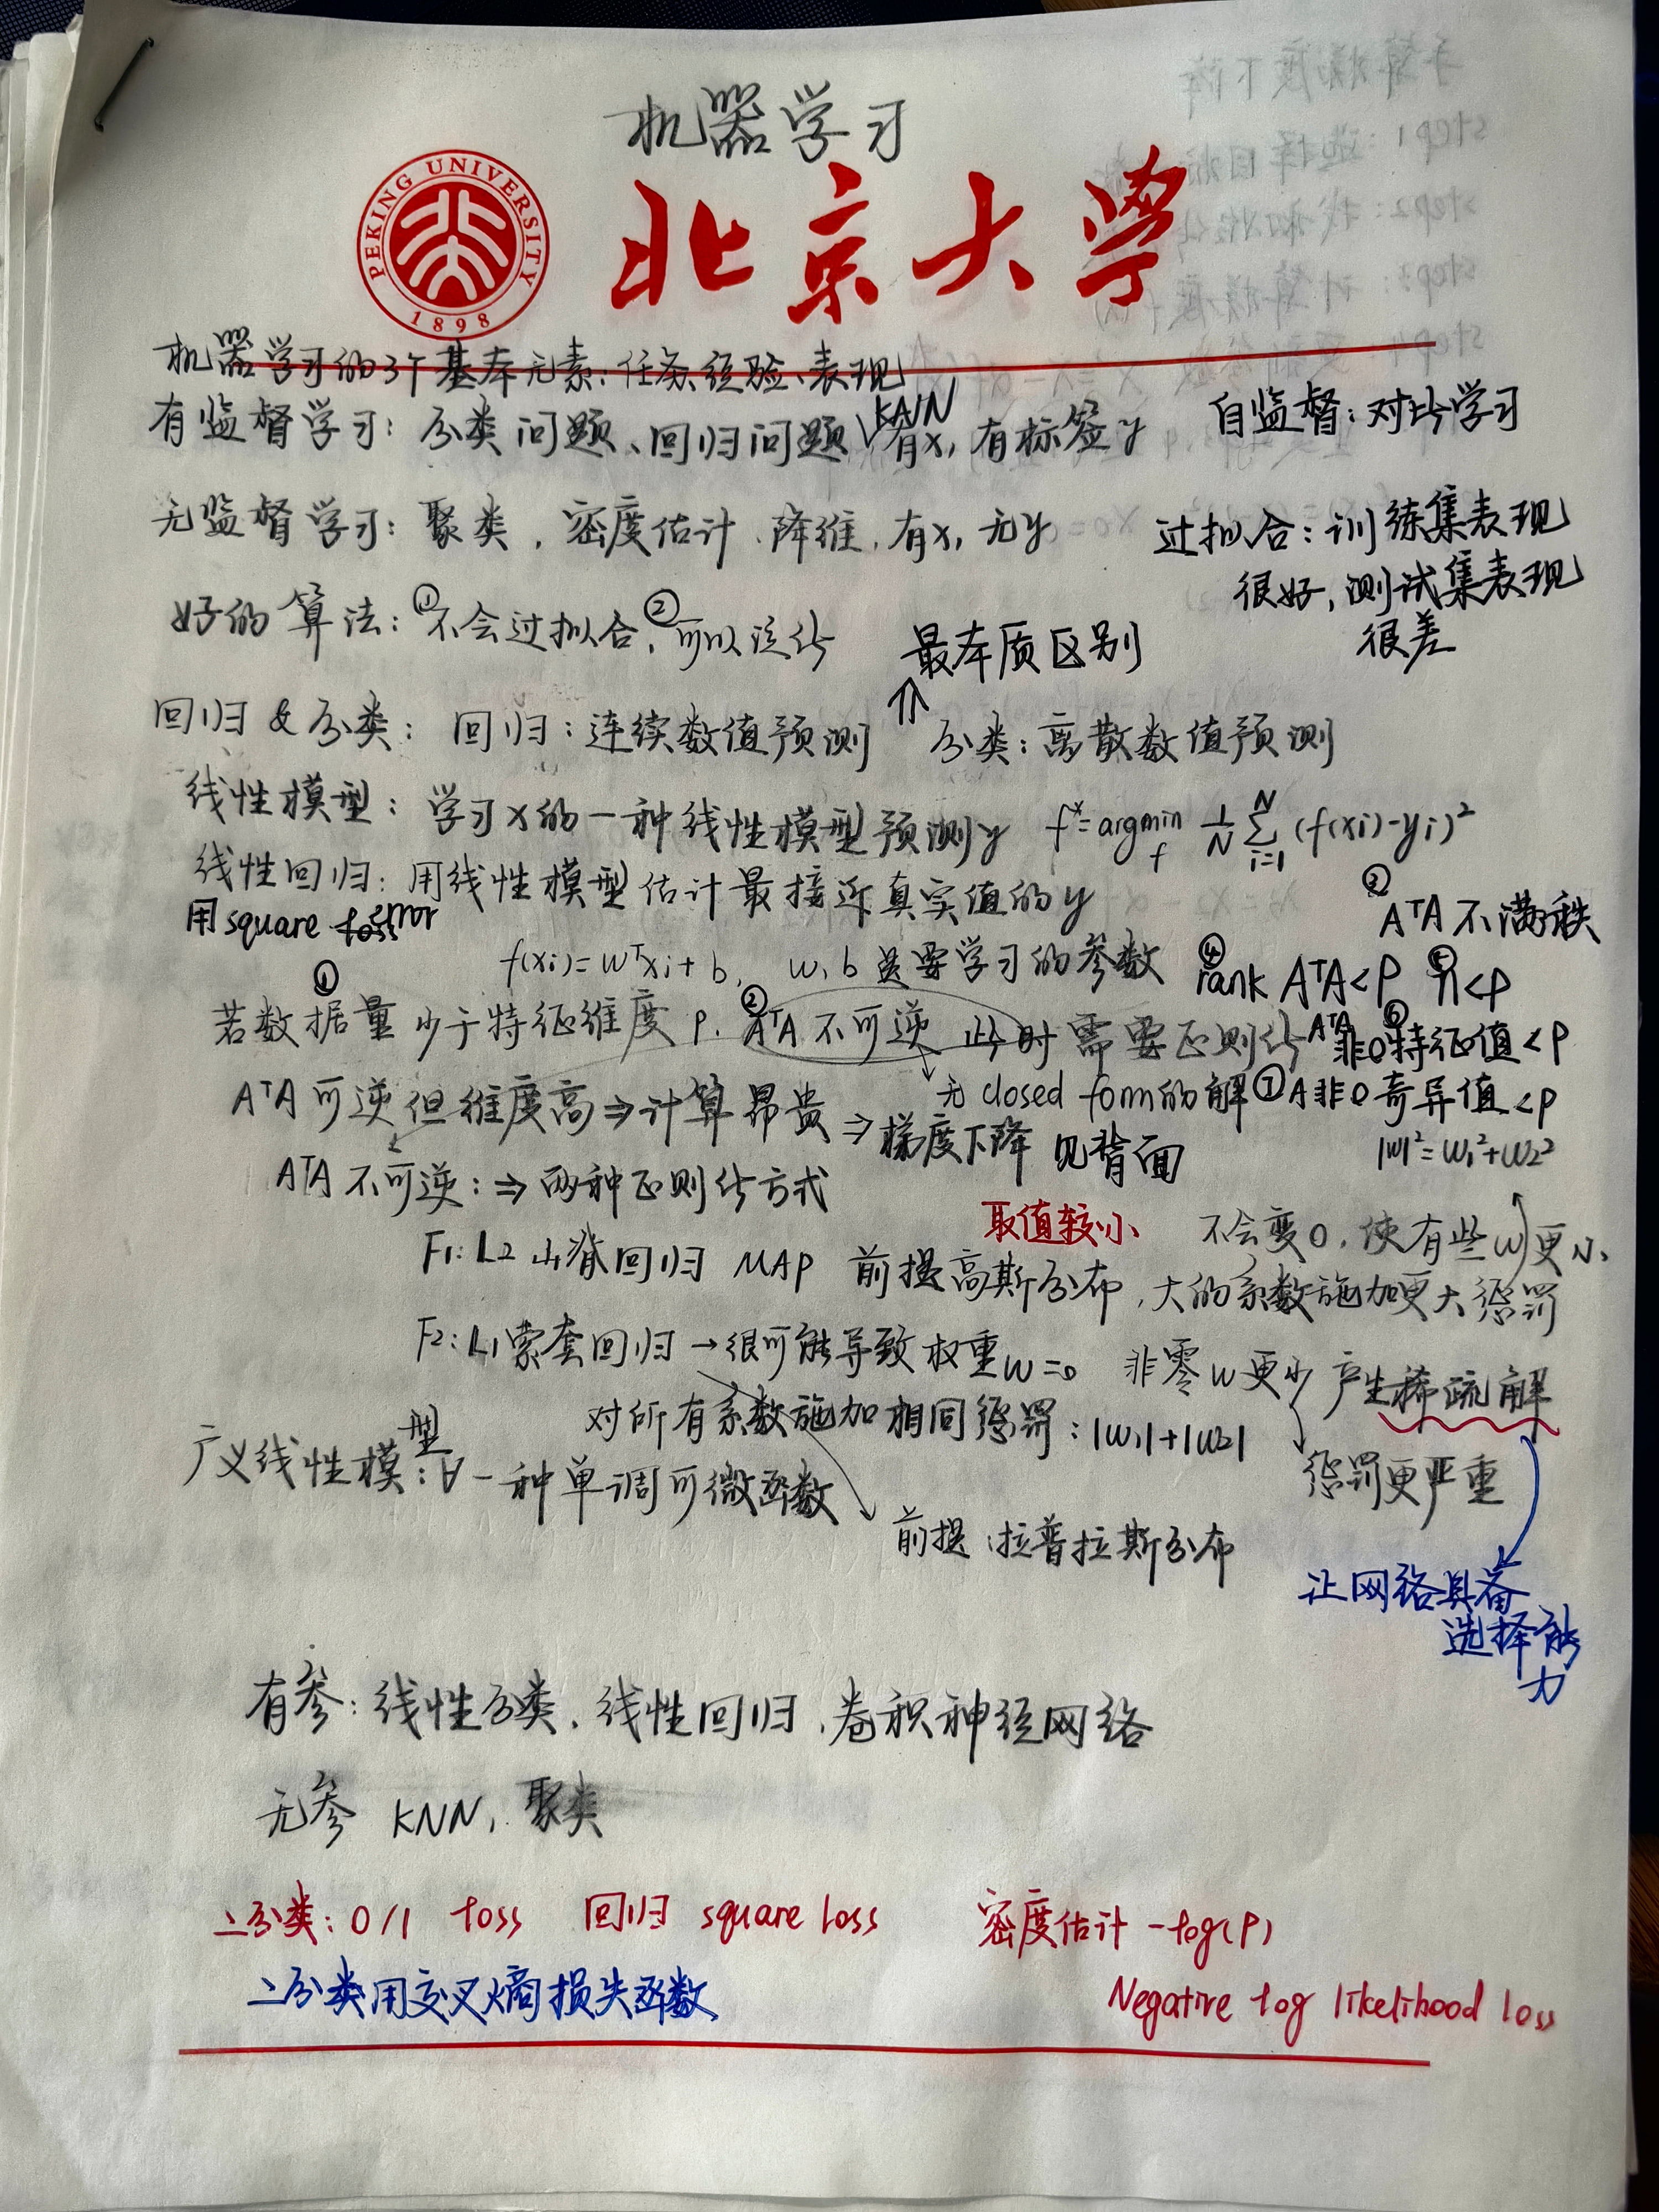 机器学习
PEKING UNIVERSITY
1898
北京大学
机器学习的3个基本元素：任务、经验、表现
有监督学习：分类问题、回归问题 有x，有标签y
自监督：对比学习
无监督学习：聚类，密度估计、降维，有x，无y
过拟合：训练集表现
很好，测试集表现
很差
好的算法：①不会过拟合，②可以泛化
最本质区别
回归&分类： 回归：连续数值预测 ⇑ 分类：离散数值预测
线性模型：学习x的一种线性模型预测y f*=argmin_f 1/N Σ_{i=1}^N (f(xi)-yi)²
线性回归：用线性模型估计最接近真实值的y
用square error
③ AᵀA不满秩
f(xi)=wᵀxi+b， w，b是要学习的参数
④ rank AᵀA<P ⑤ n<p
① 若数据量少于特征维度p. ② AᵀA不可逆 此时需要正则化
⑥ AᵀA非0特征值<P
无closed form的解
⑦ A非0奇异值<p
AᵀA可逆但维度高⇒计算昂贵⇒梯度下降 见背面
|w|²=w₁²+w₂²
AᵀA不可逆：⇒两种正则化方式
取值较小
不会变0，使有些w更小
F1: L2 山脊回归 MAP 前提高斯分布，大的系数施加更大惩罚
F2: L1索套回归→很可能导致权重w=0 非零w更少 产生稀疏解
对所有系数施加相同惩罚：|w₁|+|w₂|
惩罚更严重
广义线性模型：∀一种单调可微函数
前提：拉普拉斯分布
让网络具备
选择能
力
有参：线性分类，线性回归，卷积神经网络
无参 KNN，聚类
二分类：0/1 loss 回归 square loss 密度估计 -log(P)
二分类用交叉熵损失函数
Negative log likelihood loss